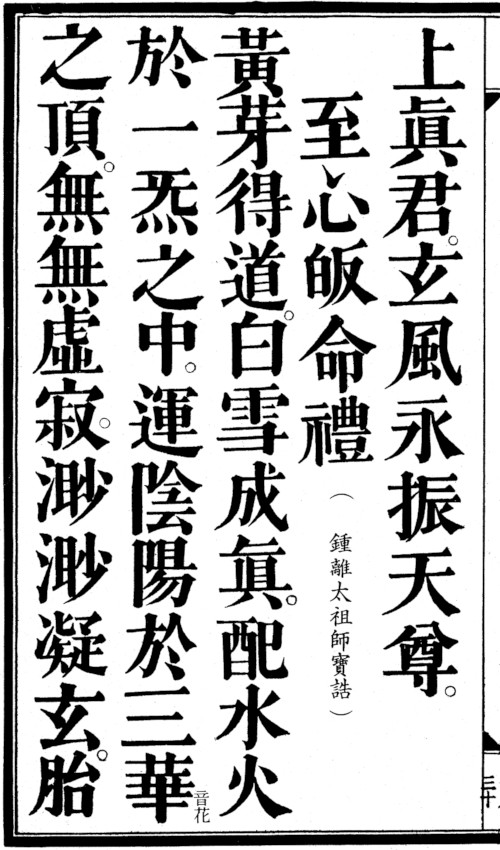 上眞君。玄風永振天尊。
至心皈命禮
（鍾離太祖師寶誥）
黃芽得道。白雪成眞。配水火
於一炁之中。運陰陽於三華
音花
之頂。無無虛寂。渺渺凝玄。胎